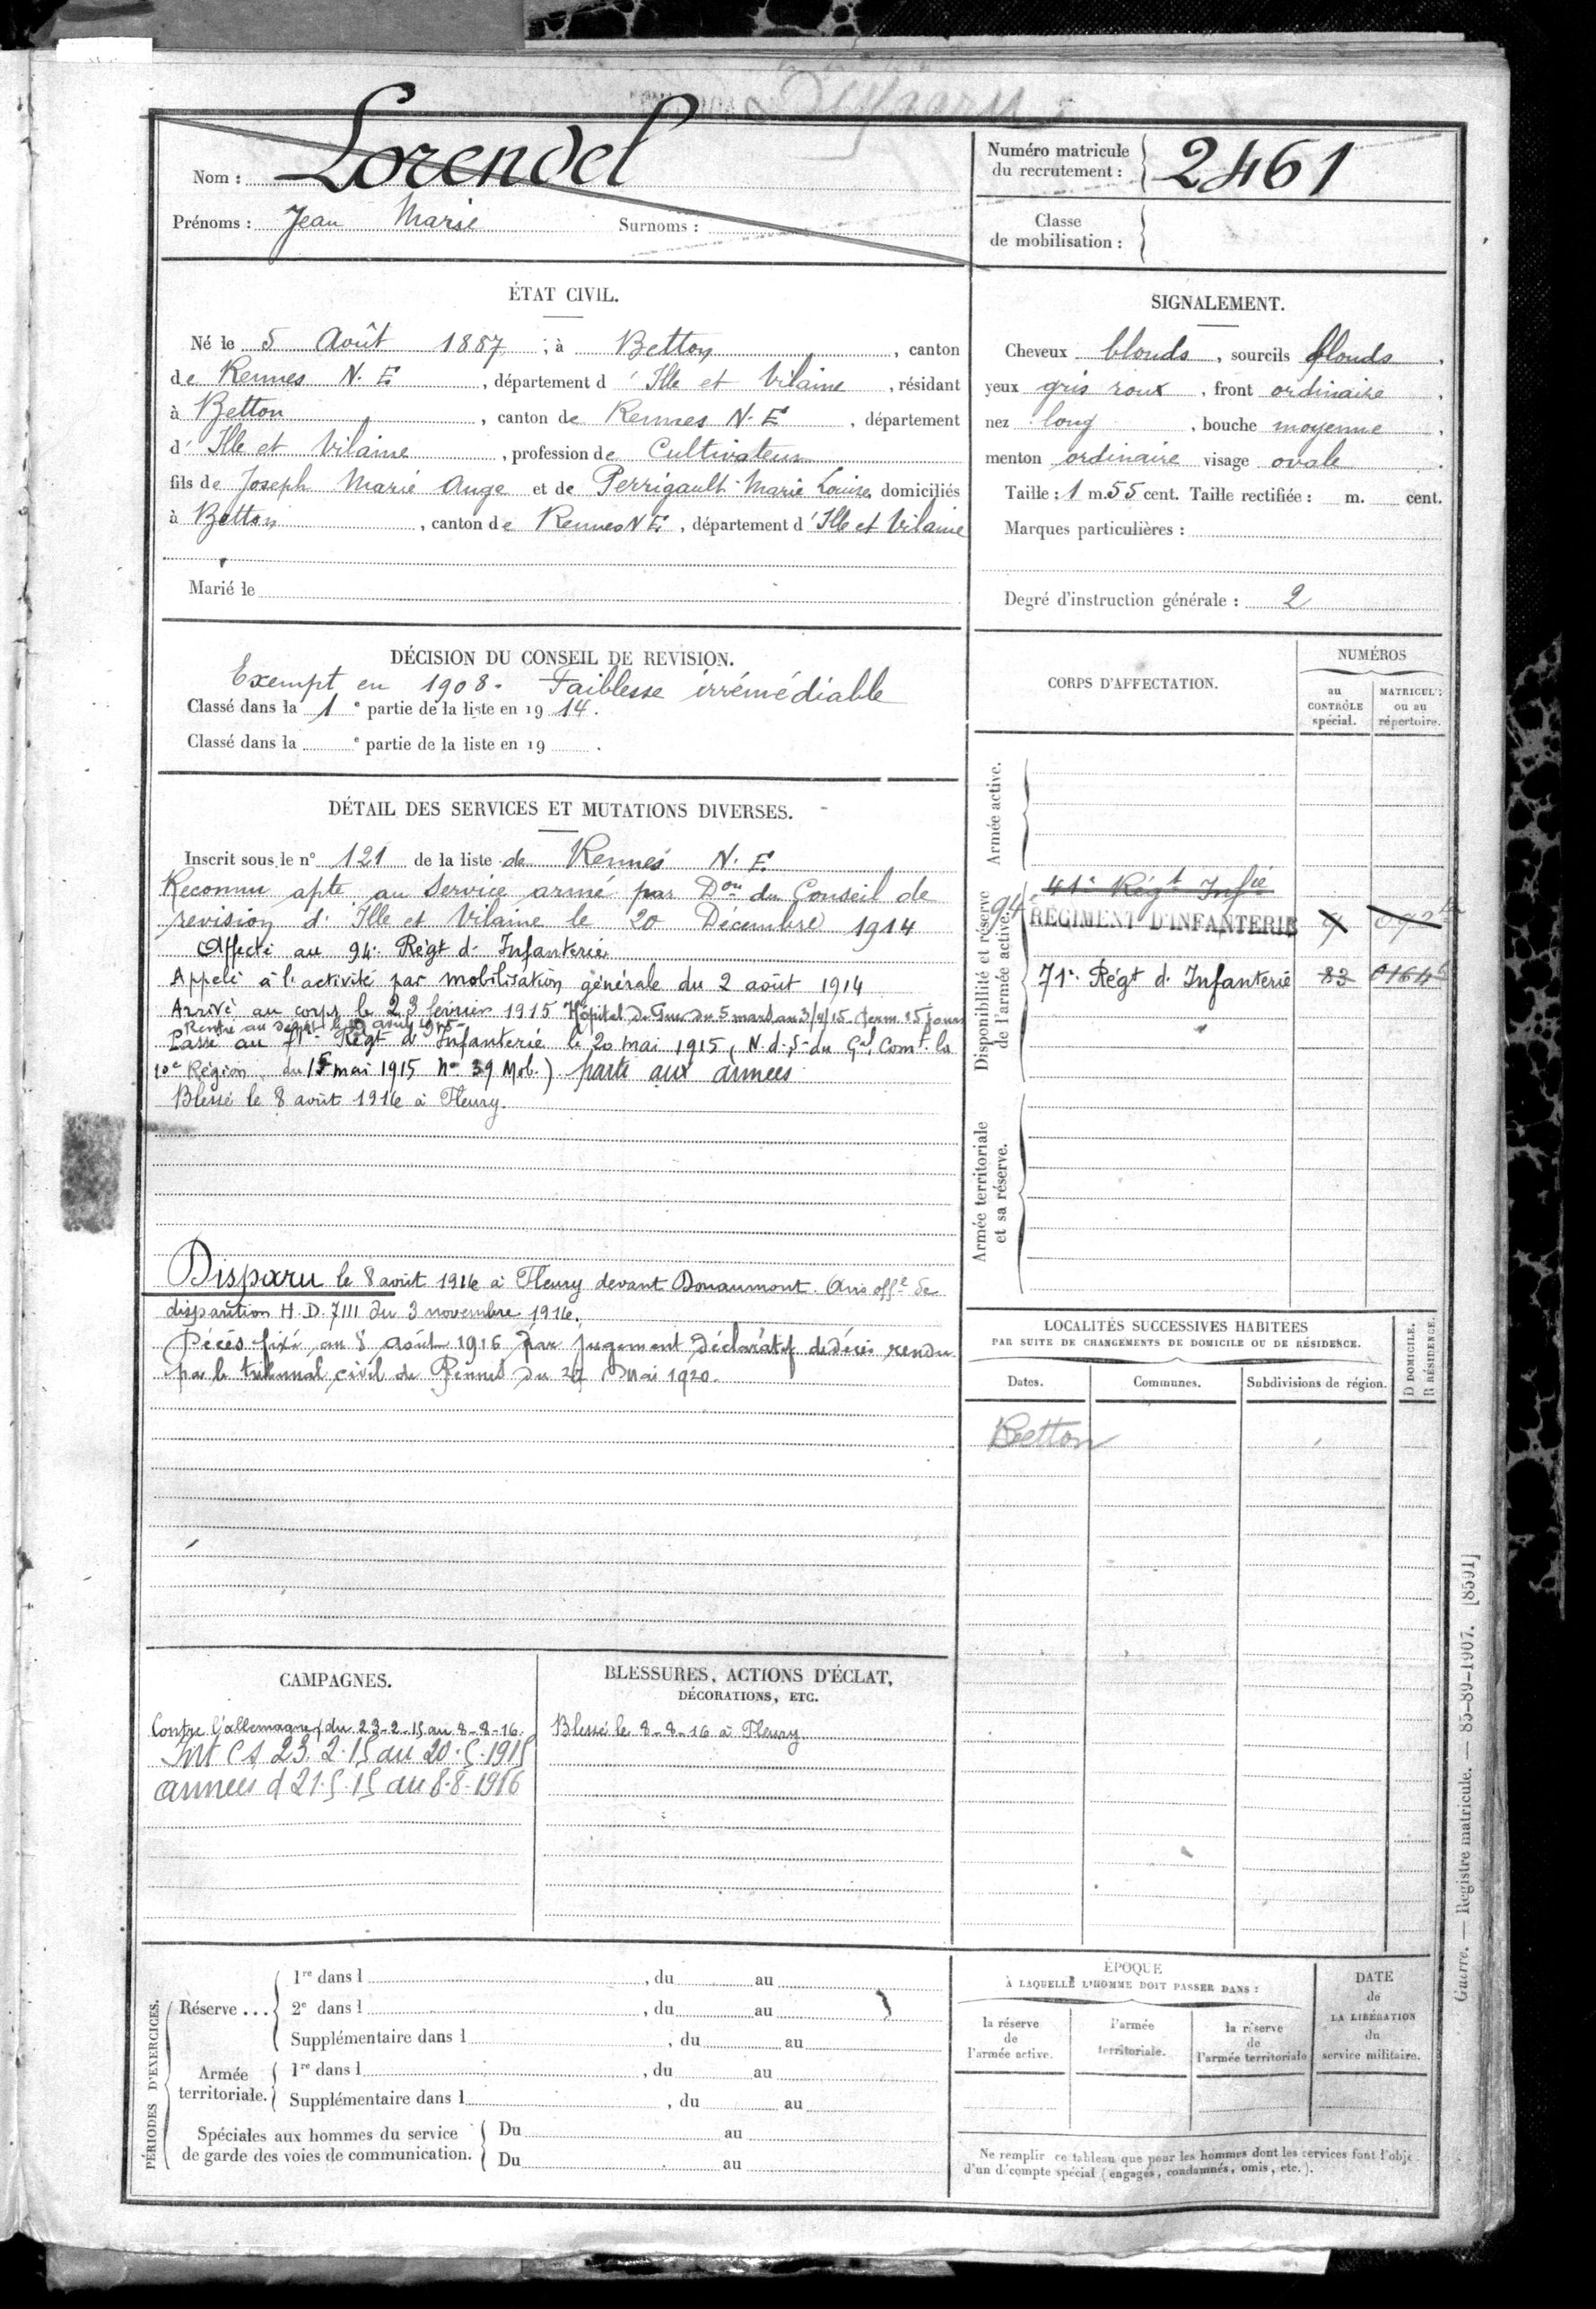 Disparu
Nom : Lorendel
Prénoms : Jean Marie Surnoms :
Numéro matricule
du recrutement : 2461
Classe
de mobilisation :
ÉTAT CIVIL.
Né le 5 Août 1887, à Betton, canton
de Rennes N. E, département d' Ille et Vilaine, résidant
à Betton, canton de Rennes N. E, département
d' Ille et Vilaine, profession de Cultivateur
fils de Joseph Marie Ange et de Perrigault Marie Louise domiciliés
à Betton, canton de Rennes N E, département d' Ille et Vilaine
Marié le
SIGNALEMENT.
Cheveux blonds, sourcils blonds,
yeux gris roux, front ordinaire,
nez long, bouche moyenne,
menton ordinaire visage ovale.
Taille : 1 m. 55 cent. Taille rectifiée : m. cent.
Marques particulières :
Degré d'instruction générale : 2
DÉCISION DU CONSEIL DE REVISION.
Exempt en 1908. Faiblesse irrémédiable
Classé dans la 1e partie de la liste en 1914.
Classé dans la e partie de la liste en 19 .
DÉTAIL DES SERVICES ET MUTATIONS DIVERSES.
Inscrit sous le n° 121 de la liste de Rennes N. E.
Reconnu apte au Service armé par Don du Conseil de
revision d' Ille et Vilaine le 20 Décembre 1914
Affecté au 94e Régt d' Infanterie
Appelé à l'activité par mobilisation générale du 2 août 1914
Arrivé au corps le 23 février 1915 Hôpital De Guer Du 5 mars au 3/4/15 Perm. 15 jours
Rentré au Dépôt le 19 avril 1915
Passé au 71e Régt d' Infanterie le 20 mai 1915, (N. d. S. du Gal Comt la
10e Région du 15 mai 1915 No 39 Mob.) parti aux armées
Blessé le 8 août 1916 à Fleury.
Disparu le 8 août 1916 à Fleury devant Douaumont. Avis offel de
disparition H. D. 7111 du 3 novembre 1916.
Décès fixé au 8 Août 1916 par jugement déclaratif de décès rendu
par le tribunal civil de Rennes Du 27 Mai 1920.
CORPS D'AFFECTATION.
NUMÉROS
au
CONTRÔLE
spécial.
MATRICUL:
ou au
répertoire.
Armée active.
Disponibilité et réserve
de l'armée active.
41e Régt Infie
94e RÉGIMENT D'INFANTERIE
71e Régt d' Infanterie 83 01646
Armée territoriale
et sa réserve.
LOCALITÉS SUCCESSIVES HABITÉES
PAR SUITE DE CHANGEMENTS DE DOMICILE OU DE RÉSIDENCE.
Dates. Communes. Subdivisions de région.
D DOMICILE.
R RÉSIDENCE.
Betton
CAMPAGNES.
Contre l'allemagne du 23-2-15 au 8-8-16.
Int C S 23.2.15 au 20.5.1915
armées d 21.5.15 au 8.8.1916
BLESSURES, ACTIONS D'ÉCLAT,
DÉCORATIONS, ETC.
Blessé le 8-8-16 à Fleury
PÉRIODES D'EXERCICES.
Réserve ...
1re dans l , du au
2e dans l , du au
Supplémentaire dans l , du au
Armée
territoriale.
1re dans l , du au
Supplémentaire dans l , du au
Spéciales aux hommes du service
de garde des voies de communication.
Du au
Du au
ÉPOQUE
À LAQUELLE L'HOMME DOIT PASSER DANS :
la réserve
de
l'armée active.
l'armée
territoriale.
la réserve
de
l'armée territoriale
DATE
de
LA LIBÉRATION
du
service militaire.
Ne remplir ce tableau que pour les hommes dont les services font l'obje
d'un décompte spécial (engagés, condamnés, omis, etc.).
Guerre. — Registre matricule. — 85-89-1907. [8591]